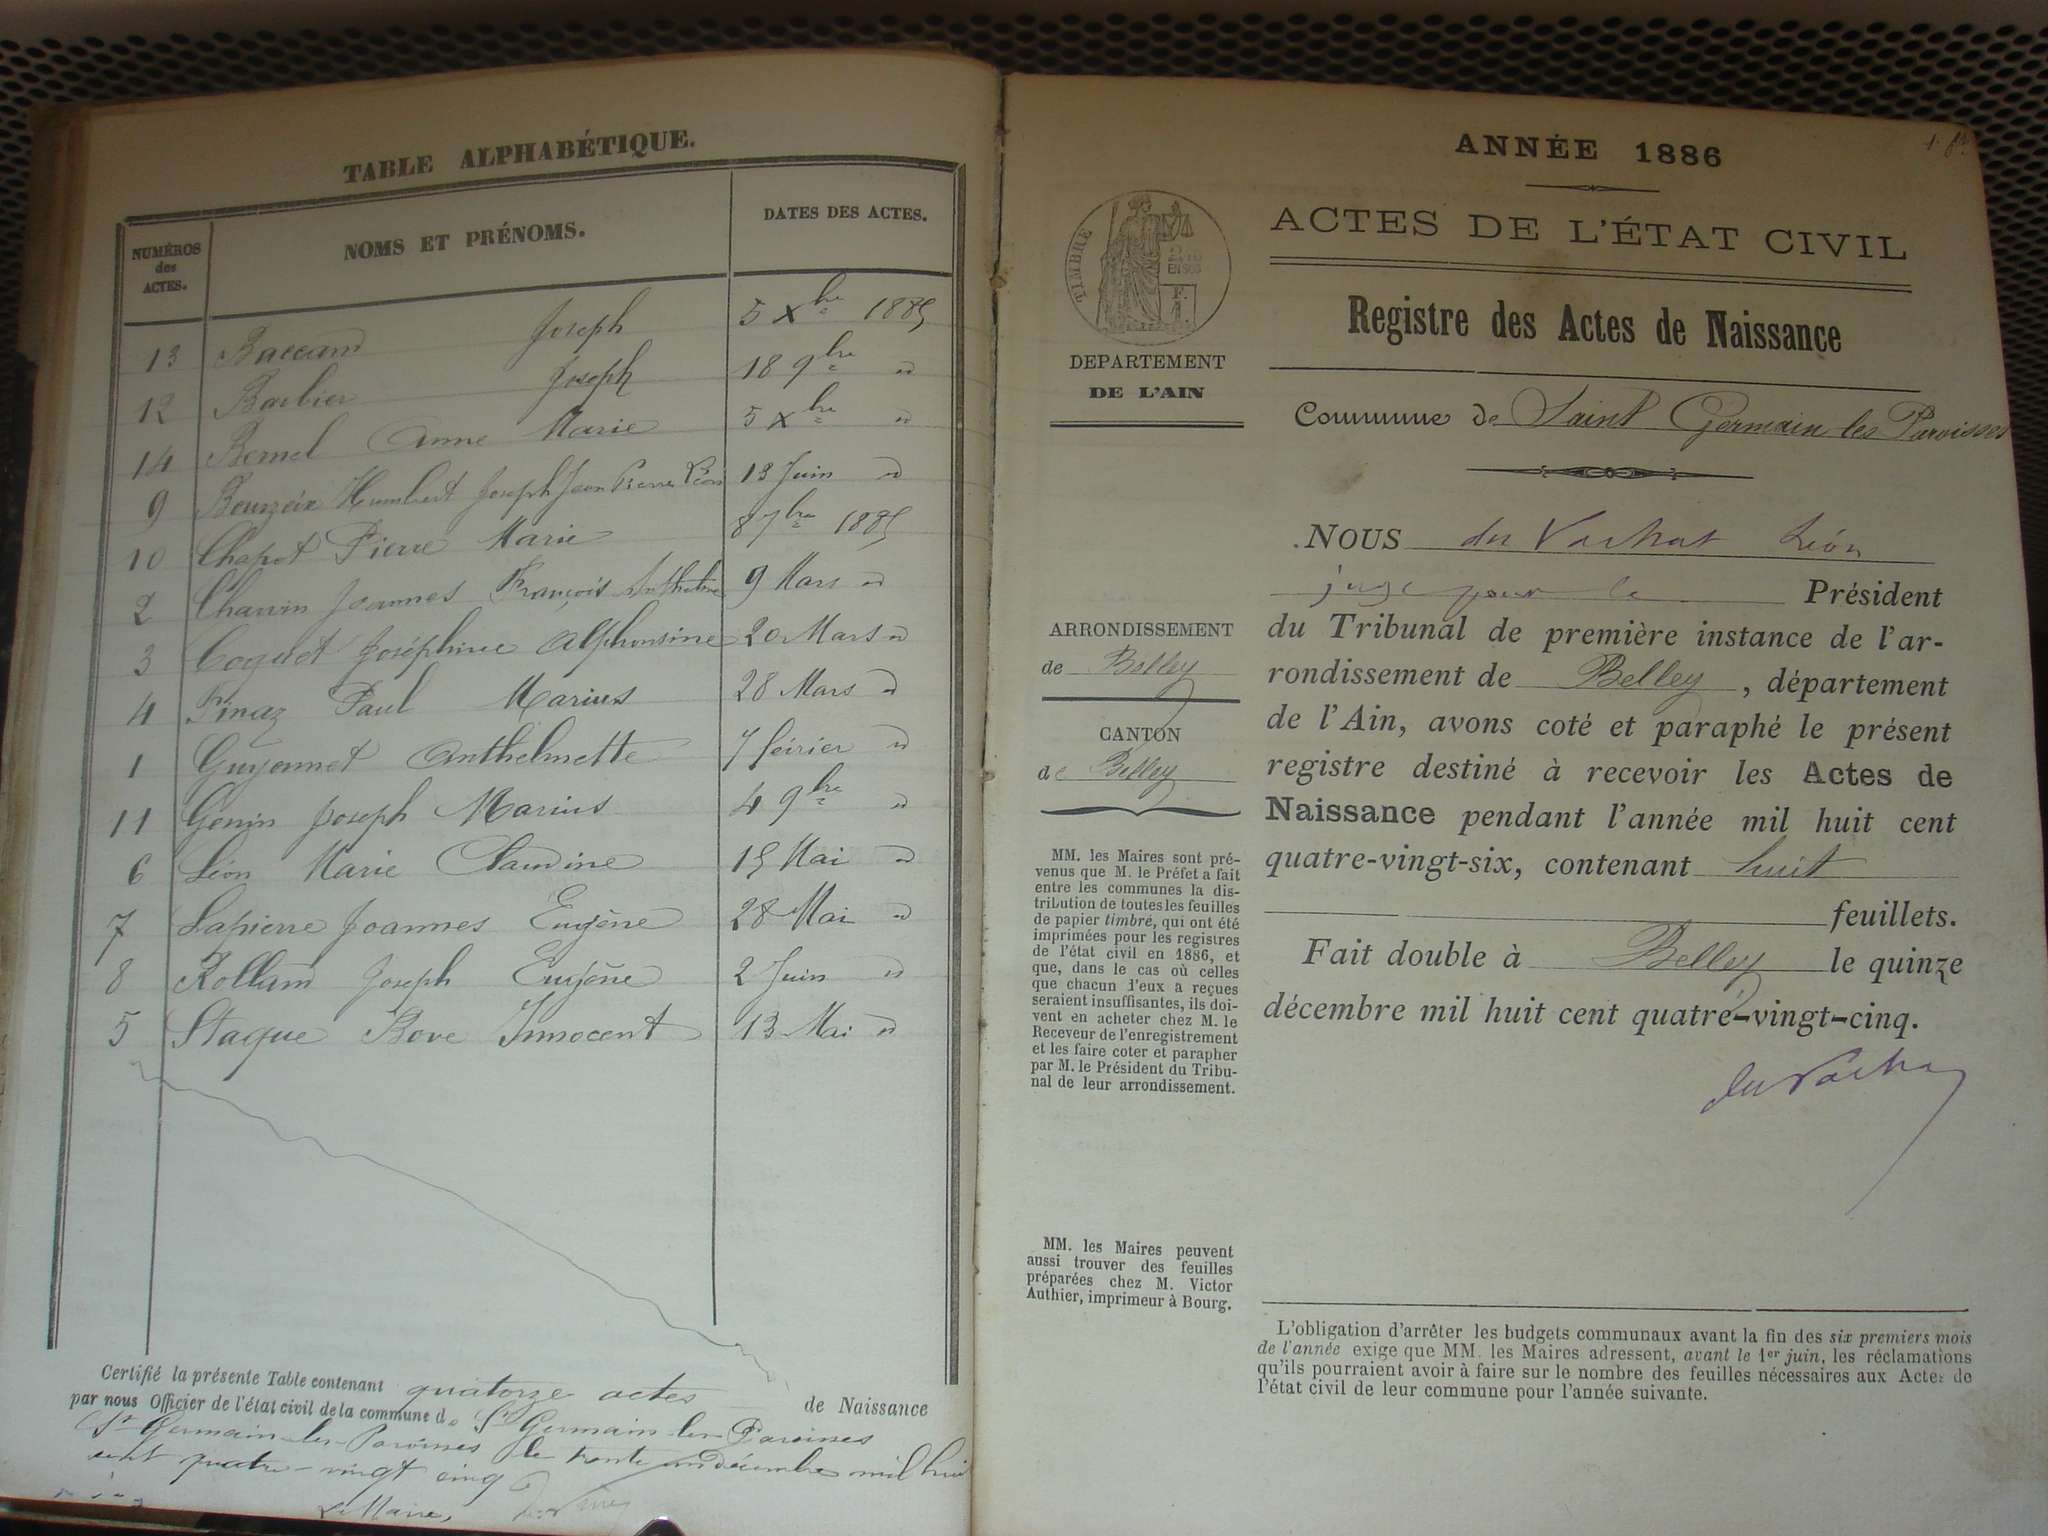 TABLE ALPHABÉTIQUE.
NUMÉROS des ACTES. NOMS ET PRÉNOMS. DATES DES ACTES.
13 Baccard Joseph 5 Xbre 1885
12 Barbier Joseph 18 9bre "
14 Bernel Anne Marie 5 Xbre "
9 Humbert Joseph Jean Pierre Léon 13 Juin "
10 Chapot Pierre Marie 8 7bre 1885
2 Charvin Joannes François Anthelme 9 Mars "
3 Coquet Joséphine Alphonsine 20 Mars "
4 Finaz Paul Marius 28 Mars "
1 Guyonnet Anthelmette 7 février "
11 Genin Joseph Marius 4 9bre "
6 Léon Marie Claudine 15 Mai "
7 Lapierre Joannes Eugène 28 Mai "
8 Rolland Joseph Eugène 2 Juin "
5 Staque Bove Innocent 13 Mai "
Certifié la présente Table contenant quatorze actes de Naissance
par nous Officier de l'état civil de la commune de St Germain les Paroisses
St Germain les Paroisses le trente un décembre mil huit
cent quatre-vingt cinq
Le Maire,
ANNÉE 1886
ACTES DE L'ÉTAT CIVIL
Registre des Actes de Naissance
TIMBRE
DEPARTEMENT
DE L'AIN
Commune de Saint Germain les Paroisses
NOUS du Vachat Léon
juge pour le Président
du Tribunal de première instance de l'ar-
rondissement de Belley, département
de l'Ain, avons coté et paraphé le présent
registre destiné à recevoir les Actes de
Naissance pendant l'année mil huit cent
quatre-vingt-six, contenant huit
feuillets.
Fait double à Belley le quinze
décembre mil huit cent quatre-vingt-cinq.
du Vachat
ARRONDISSEMENT
de Belley
CANTON
de Belley
MM. les Maires sont pré-
venus que M. le Préfet a fait
entre les communes la dis-
tribution de toutes les feuilles
de papier timbré, qui ont été
imprimées pour les registres
de l'état civil en 1886, et
que, dans le cas où celles
que chacun d'eux a reçues
seraient insuffisantes, ils doi-
vent en acheter chez M. le
Receveur de l'enregistrement
et les faire coter et parapher
par M. le Président du Tribu-
nal de leur arrondissement.
MM. les Maires peuvent
aussi trouver des feuilles
préparées chez M. Victor
Authier, imprimeur à Bourg.
L'obligation d'arrêter les budgets communaux avant la fin des six premiers mois
de l'année exige que MM. les Maires adressent, avant le 1er juin, les réclamations
qu'ils pourraient avoir à faire sur le nombre des feuilles nécessaires aux Actes de
l'état civil de leur commune pour l'année suivante.